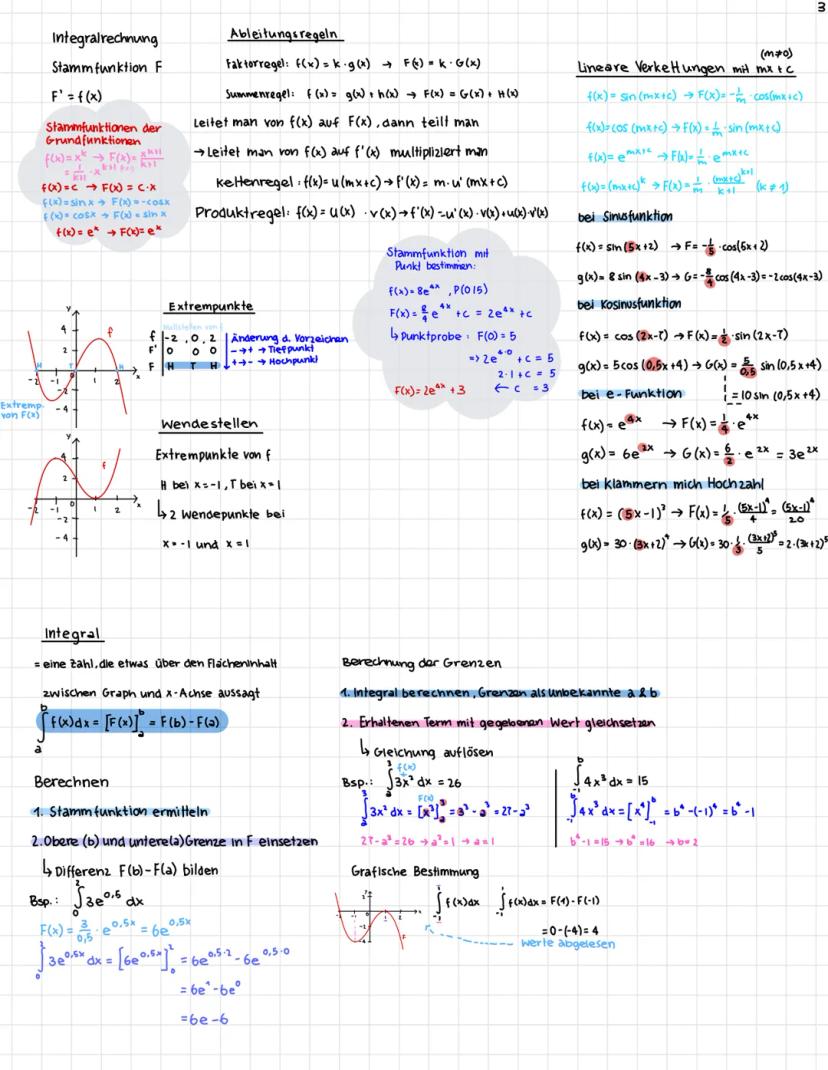 3
Integralrechnung
Stammfunktion F
F' = f(x)
Stammfunktionen der
Grundfunktionen
f(x)=x^k → F(x)= x^(k+1)/(k+1)
= 1/(k+1) · x^(k+1)
f(x)=c → F(x) = c·x
f(x)=sinx → F(x)=-cosx
f(x)=cosx → F(x)= sinx
f(x)=e^x → F(x)=e^x
Ableitungsregeln
Faktorregel: f(x)=k·g(x) → F(x)=k·G(x)
Summenregel: f(x)= g(x)+h(x) → F(x)=G(x)+H(x)
Leitet man von f(x) auf F(x), dann teilt man
→Leitet man von f(x) auf f'(x) multipliziert man
Kettenregel: f(x)=u(mx+c)→f'(x)= m·u'(mx+c)
Produktregel: f(x)= u(x) ·v(x)→f'(x)=u'(x)·v(x)+u(x)·v'(x)
Lineare Verkettungen mit mx+c
(m≠0)
f(x)= sin(mx+c) →F(x)=-1/m ·cos(mx+c)
f(x)=cos(mx+c)→F(x)=1/m·sin(mx+c)
f(x)= e^(mx+c) →F(x)=1/m·e^(mx+c)
f(x)=(mx+c)^k →F(x)=1/m·(mx+c)^(k+1)/(k+1) (k≠1)
bei Sinusfunktion
f(x)=sin(5x+2) →F=-1/5·cos(5x+2)
g(x)= 8 sin(4x-3)→G=-8/4 cos(4x-3)=-2cos(4x-3)
bei Kosinusfunktion
f(x)= cos(2x-7)→F(x)=1/2·sin(2x-7)
g(x)=5cos(0,5x+4)→G(x)=5/0,5 sin(0,5x+4)
=10sin(0,5x+4)
bei e-Funktion
f(x)=e^4x →F(x)=1/4·e^4x
g(x)= 6e^2x →G(x)=6/2·e^2x = 3e^2x
bei Klammern mich Hochzahl
f(x)=(5x-1)³ →F(x)=1/5·(5x-1)⁴/4=(5x-1)⁴/20
g(x)=30·(3x+2)⁴→G(x)=30·1/3·(3x+2)⁵/5=2·(3x+2)⁵
Stammfunktion mit
Punkt bestimmen:
f(x)=8e^4x , P(0|5)
F(x)=8/4 e^4x +c = 2e^4x +c
↳Punktprobe: F(0)=5
⇒2e^4·0 +c = 5
2·1+c = 5
← c = 3
F(x)=2e^4x+3
y
4
2
-2
-4
-2 -1 0 1 2 x
f
H T H
Extremp.
von F(x)
Extrempunkte
Nullstellen von f
f -2,0,2
F' 0 0 0
F H T H
Änderung d. Vorzeichen
-→+ → Tiefpunkt
+→- → Hochpunkt
y
4
2
-2
-4
-2 -1 0 1 2 x
f
Wendestellen
Extrempunkte von f
H bei x=-1, T bei x=1
↳2 Wendepunkte bei
x=-1 und x=1
Integral
=eine Zahl, die etwas über den Flächeninhalt
zwischen Graph und x-Achse aussagt
∫ₐᵇ f(x)dx = [F(x)]ₐᵇ = F(b)-F(a)
Berechnen
1. Stammfunktion ermitteln
2.Obere (b) und untere(a)Grenze in F einsetzen
↳Differenz F(b)-F(a) bilden
Bsp.: ∫₀² 3e^0,5 dx
F(x)=3/0,5·e^0,5x = 6e^0,5x
∫₀² 3e^0,5x dx = [6e^0,5x]₀² = 6e^0,5·2 - 6e^0,5·0
= 6e¹-6e⁰
=6e-6
Berechnung der Grenzen
1. Integral berechnen, Grenzen als unbekannte a & b
2. Erhaltenen Term mit gegebenen Wert gleichsetzen
↳Gleichung auflösen
f(x)
Bsp.: ∫ₐ³ 3x² dx = 26
F(x)
∫ₐ³ 3x² dx = [x³]ₐ³ = 3³-a³ =27-a³
27-a³=26 →a³=1 →a=1
∫₋₁ᵇ 4x³ dx = 15
∫₋₁ᵇ 4x³ dx = [x⁴]₋₁ᵇ = b⁴-(-1)⁴ = b⁴-1
b⁴-1=15 →b⁴=16 →b=2
Grafische Bestimmung
∫₋₁¹ f(x)dx ∫₋₁¹ f(x)dx = F(1)-F(-1)
=0-(-4)=4
Werte abgelesen